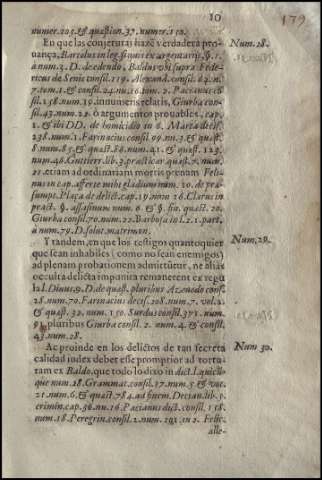 10
179
numer.205.et quæstion.37.numer.150.
En que las conjeturas hazē verdadera pro-
uança, Bartolus in leg.si quis ex argentarijs. §.1.
a num.3. D. de edendo, Baldus vbi supra Feli-
nicus de Senis consil.119. Alexand. consil.64.n.
7.tom.1.et consil.24.nu.16.tom.2. Pacianus cō
sil.158.num.19.innumeris relatis, Giurba con-
sil.43.num.21. o argumentos prouables, cap.
2. et ibi DD. de homicidio in 6. Marta decis.
238.num.1. Farinacius consil.69.nu.3 et quæst.
8.num.85.et quæst.86.num.41.et quæst. 123.
num.46.Gutierr.lib.3.practicar.quæst.7.num.
21.etiam ad ordinariam mortis prenam Feli-
nus in cap.afferte mihi gladium num. 20. de præ-
sumpt. Plaça de delict.cap.17.num 26.Clarus in
pract. §. assasinium num.6 et §. fin. quæst.20.
Giurba consil.70.num.22.Barbosa in l.2.1.part.
a num.79.D.solut.matrimon.
Num.28.
Y tandem, en que los testigos quantoquier
que sean inhabiles (como no sean enemigos)
ad plenam probationem admittūtur, ne alias
occulta delicta impunita remanerent ex regu
la l. Diuus, 9. D. de quæst. pluribus Azeuedo cons.
28.num.70. Farinacius decis.208.num.7. vol.2.
et quæst. 32. num. 150. Surdus consil.371. num.
91. pluribus Giurba consil. 2. num.4. et consil.
43.num.28.
Num.29.
Ac proinde en los delictos de tan secreta
calidad iudex debet esse promptior ad tortu-
ram ex Baldo, que todo lo dixo in dict.l.quicūq
que num.28.Grammat.consil.37.num.5 et vot.
21.num.6.et quæst.784.ad finem.Decian.lib.9.
crimin.cap.36.nu.16.Pacianus dict. consil. 158.
num.18.Peregrin.consil.2.num.191.in 2. Felic.
Num 30.
alle-